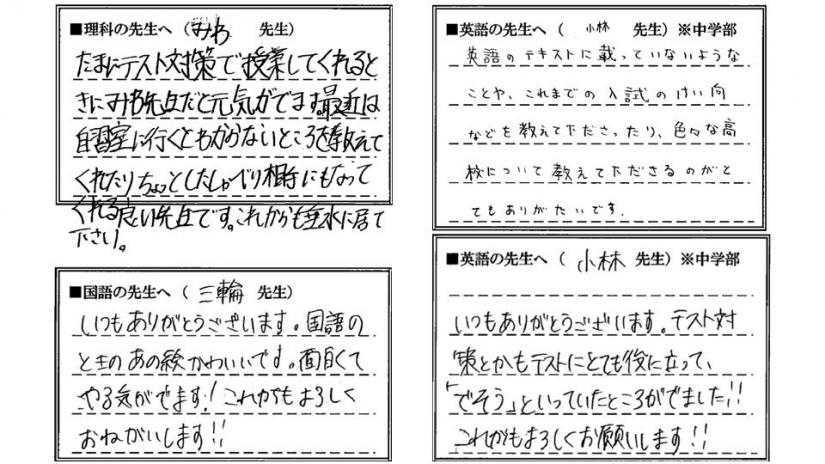 ■理科の先生へ（みわ 先生）
たまにテスト対策で授業してくれると
きにみわ先生だと元気がでます。最近は
自習室に行くとわからないところを教えて
くれたりちょっとしたしゃべり相手にもなって
くれる良い先生です。これからも垂水に居て
下さい。
■国語の先生へ（三輪 先生）
いつもありがとうございます。国語の
ときのあの絵かわいいです。面白くて
やる気がでます！これからもよろしく
おねがいします!!
■英語の先生へ（小林 先生）※中学部
英語のテキストに載っていないような
ことや、これまでの入試のけい向
などを教えて下さったり、色々な高
校について教えて下さるのがと
てもありがたいです.
■英語の先生へ（小林 先生）※中学部
いつもありがとうございます。テスト対
策とかもテストにとても役に立って、
「でそう」といっていたところがでました!!
これからもよろしくお願いします!!